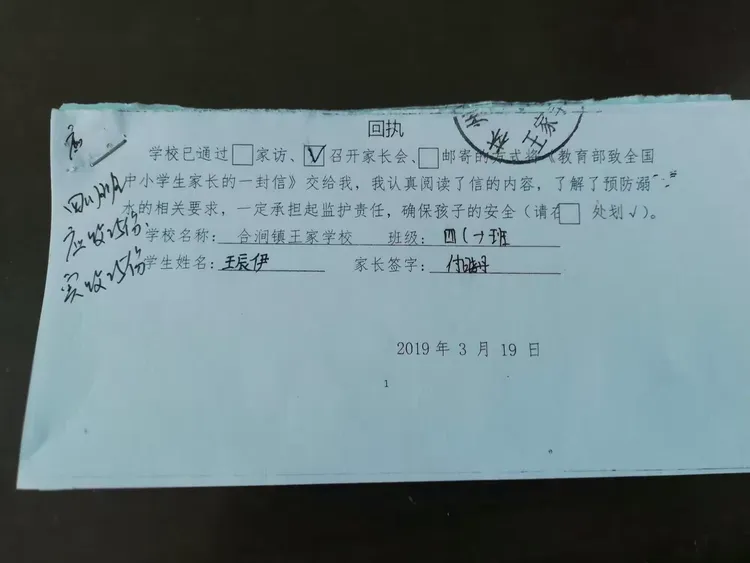 回执
学校已通过□家访、☑召开家长会、□邮寄的方式将《教育部致全国
中小学生家长的一封信》交给我，我认真阅读了信的内容，了解了预防溺
水的相关要求，一定承担起监护责任，确保孩子的安全（请在□ 处划√）。
学校名称： 合涧镇王家学校 班级：四(一)班
学生姓名：王辰伊 家长签字：付
2019 年 3 月 19 日
1
应收25份
实收25份
王家